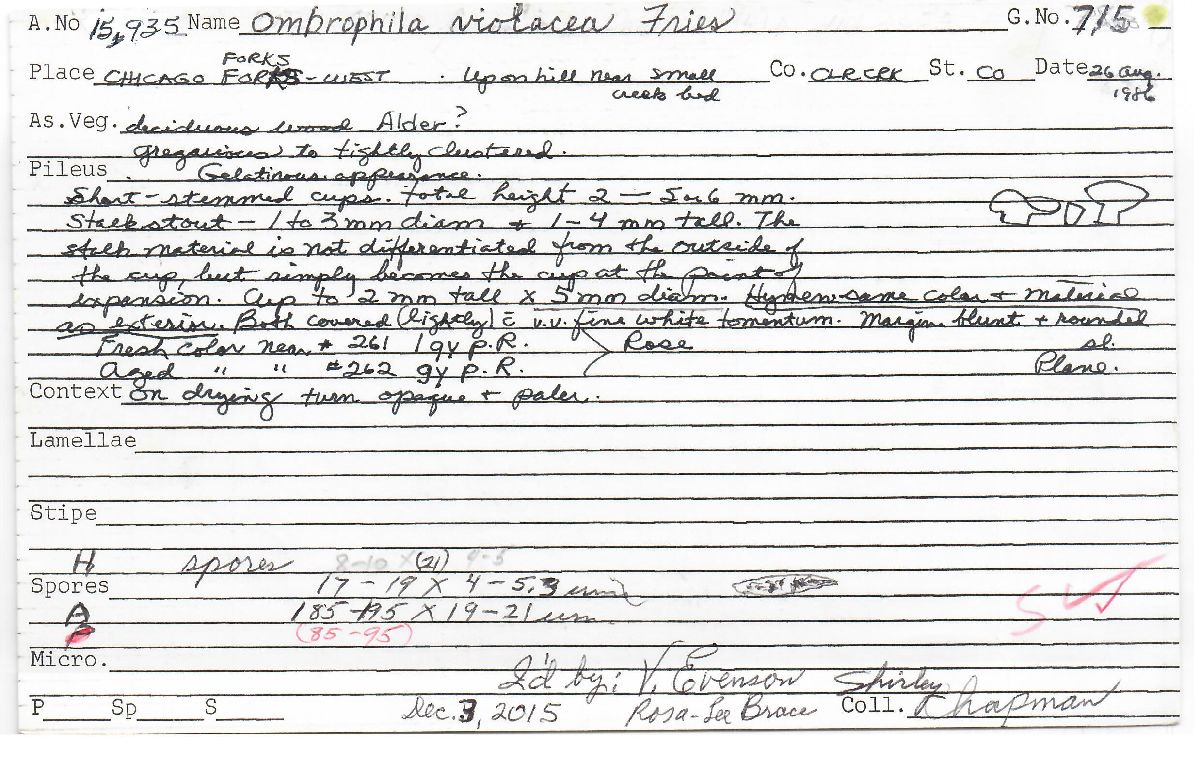 A.No 15,935 Name Ombrophila violacea Fries G.No. 715
FORKS
Place CHICAGO FORKS-WEST . Up on hill near small Co. CLR CRK St. CO Date 26 Aug.
creek bed 1986
As.Veg. deciduous wood Alder?
gregarious to tightly clustered.
Pileus . Gelatinous appearance.
Short-stemmed cups. Total height 2 — 5 or 6 mm.
Stalk stout — 1 to 3 mm diam + 1-4 mm tall. The
stalk material is not differentiated from the outside of
the cup, but simply becomes the cup at the point of
expansion. Cup to 2 mm tall x 5 mm diam. Hymen. same color + material
as exterior. Both covered (lightly) c̄ v.v. fine white tomentum. Margin blunt + rounded
Fresh color near # 261 l gy p.R. Rose sl.
Aged " " #262 gy p.R. Plane.
Context on drying turn opaque + paler.
Lamellae
Stipe
H spores 8-10 x (21) 4-5
Spores 17 - 19 x 4 - 5.3 um
A 185-195 x 19-21 um
(85-95)
SV
Micro.
I'd by: V. Evenson Shirley
P Sp S Dec. 3, 2015 Rosa-Lee Brace Coll. Chapman